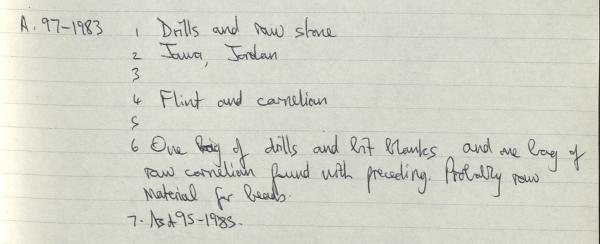 A. 97-1983 1 Drills and raw stone
2 Jawa, Jordan
3
4 Flint and carnelian
5
6 One bag of drills and bit blanks and one bag of
raw carnelian found with preceding. Probably raw
material for beads.
7. As A95-1983.